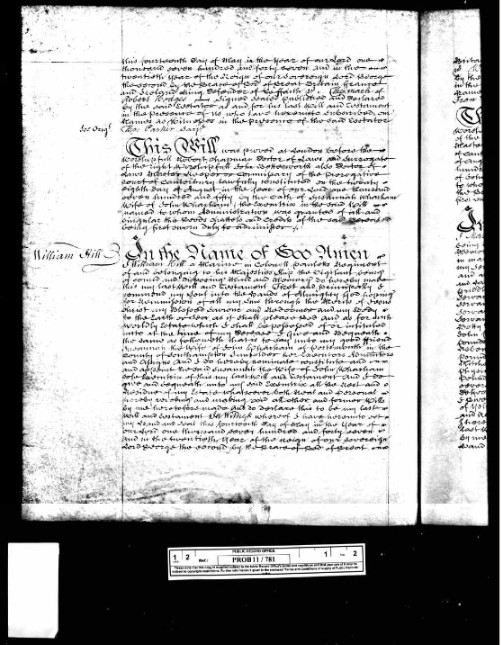 this fourteenth Day of May in the Year of our Lord one
thousand seven hundred and forty seven and in the
twentieth Year of the Reign of our Sovereign Lord George
the second by the Grace of God of Great Britain France
and Ireland King Defender of the Faith &c.
Robert Hodges Signed sealed published and declared
by the said Testator as and for his last Will and Testament
in the presence of us who have hereunto subscribed our
Names as Witnesses in the presence of the said Testator
Tho: Parker
This Will was proved at London before the
Worshipfull Robert Chapman Doctor of Laws and Surrogate
of the Right Worshipfull John Bettesworth also Doctor of
Laws Master Keeper or Commissary of the Prerogative
Court of Canterbury lawfully constituted on the twenty
eighth day of August in the Year of our Lord one thousand
seven hundred and fifty by the Oath of Susannah Wharham
Wife of John Wharham the Executrix in the said Will
named to whom Administration was granted of all and
singular the Goods Chattels and Credits of the said deceased
being first sworn duly to administer
William Hill
In the Name of God Amen
I William Hill a Marine in Colonell Paulets Regiment
of and belonging to his Majestys Ship the Vigilant being
of sound and disposing Mind and Memory do hereby make
this my last Will and Testament First and principally I
commend my Soul into the hands of Almighty God hoping
for Remission of all my Sins through the Merits of Jesus
Christ my blessed Saviour and Redeemer and my Body
to the Earth or Sea as it shall please God And as for such
worldly Estate which I shall be possessed of or intitled
unto at the time of my Decease I Give and Bequeath
the same as followeth that is to say unto my good Friend
Susannah the Wife of John Wharham of Portsmouth in the
County of Southampton Innholder her Executors Administrators
and Assigns And I do hereby nominate constitute and
and appoint the said Susannah the Wife of John Wharham
sole Executrix of this my last Will and Testament And I do
give and bequeath unto my said Executrix all the Rest and
Residue of my Estate whatsoever both Real and Personal
hereby revoking and making void all other and former Wills
by me heretofore made And do declare this to be my last
Will and Testament In Witness whereof I have hereunto set
my Hand and Seal this fourteenth day of May in the Year of
our Lord one thousand seven hundred and forty seven
and in the twentieth Year of the Reign of our Sovereign
Lord George the second by the Grace of God of Great
PUBLIC RECORD OFFICE
1 2
Ref.:
PROB 11 / 781
1 2